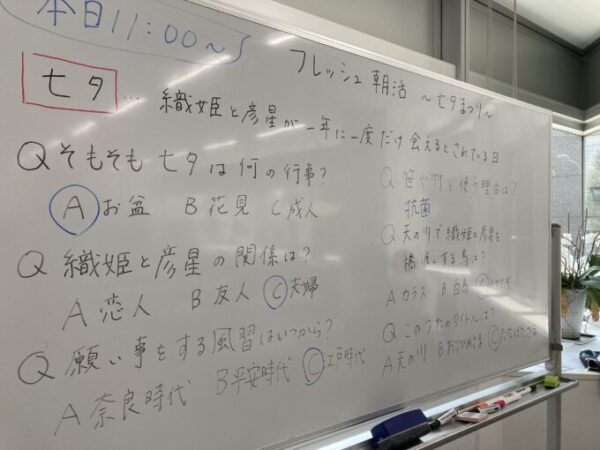 本日11:00~
フレッシュ朝活 ~七夕まつり~
七夕… 織姫と彦星が一年に一度だけ会えるとされている日
Q そもそも七夕は何の行事?
A お盆 B 花見 C 成人
Q 織姫と彦星の関係は?
A 恋人 B 友人 C 夫婦
Q 願い事をする風習はいつから?
A 奈良時代 B 平安時代 C 江戸時代
Q 笹や竹を使う理由は?
抗菌
Q 天の川で織姫と彦星を
橋渡しする鳥は?
A カラス B 白鳥 C カササギ
Q このうたのタイトルは?
A 天の川 B おりひめさま C たなばたさま